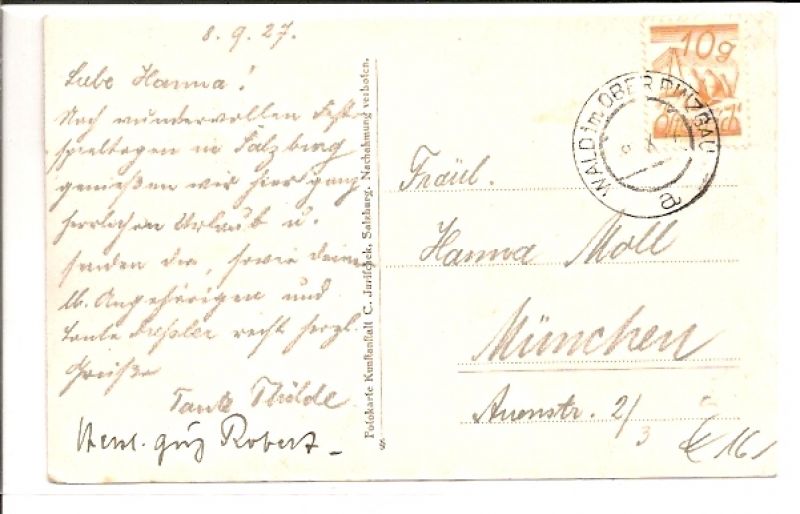 8. 9. 27.
Liebe Hanna!
Nach wundervollen Fest-
spieltagen in Salzburg
genießen wir hier ganz
herrlichen Urlaub u.
senden Dir, sowie Deinen
lb. Angehörigen und
Tante recht herzl.
Grüße
Tante Thilde
Herzl. Gruß Robert
Fotokarte Kunstanstalt C. Jurischek, Salzburg. Nachahmung verboten.
10g
WALD im OBER PINZGAU
a
Fräul.
Hanna Moll
München
Auenstr. 2/
3
16/